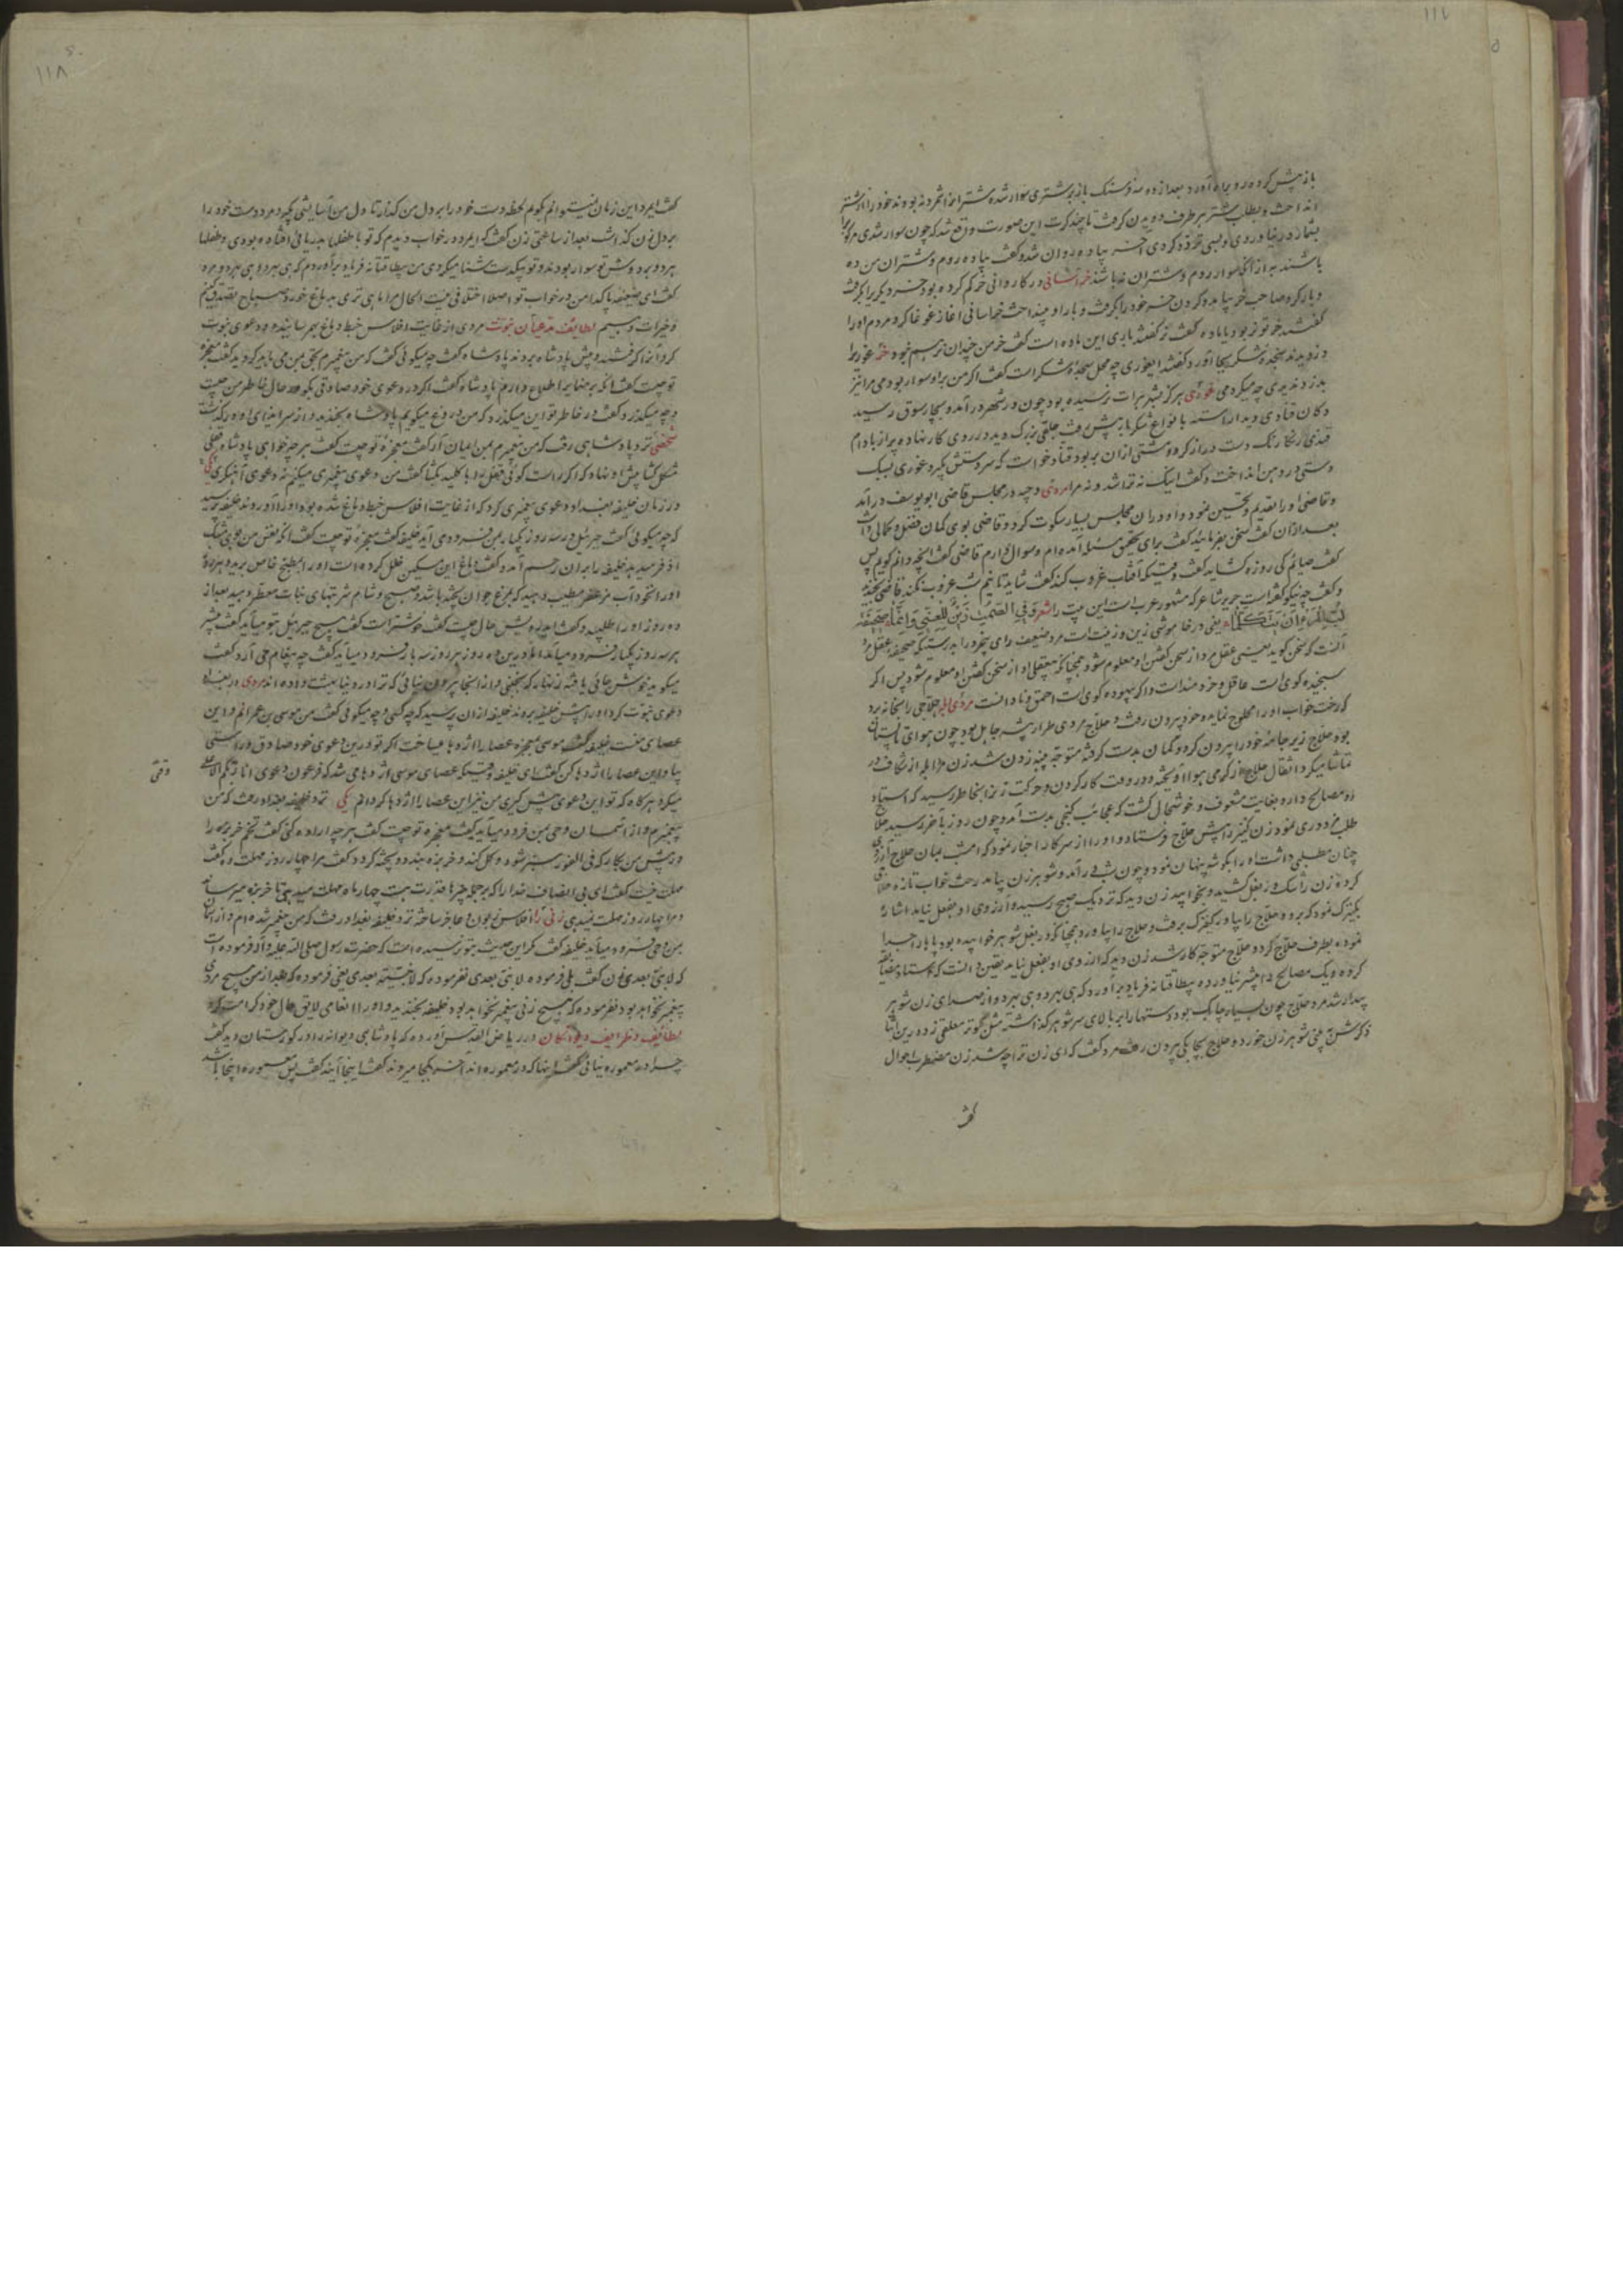 باز پیش کرده رو براه آورد بعد از ده سه فرسنک باز بر شتری سوار شده شتر انرا شمرد نه بودند خود را از شتر
انداخت و بطلب شتر هر طرف دویدن گرفت تا چند کرت این صورت واقع شد که چون سوار شدی
شمار درنیاوردی و بسی تردد کردی آخر پیاده روان شد و گفت پیاده روم و شتران من ده
باشند به از آنکه سوار روم و شتران نه باشند خراسانی در کاروانی خر گم کرده بود خر دیگری را بگرفت
و بار کرد صاحب خر بیامد و گردن خر خود را بگرفت و بار او بینداخت خراسانی آغاز غوغا کرد مردم او را
گفتند خر تو نر بود یا ماده گفت نر گفتند باری این ماده است گفت خر من چندان نر هم نبود خر غوری را
دزدیدند سجده شکر بجا آورد گفتند ای غوری چه محل سجده شکر است گفت اگر من بر او سوار بودمی مرا نیز
بدزدیدندی چه میکردمی غوری هرگز بشهر هرات نرسیده بود چون در شهر درآمد و بچارسوق رسید
دکان قنادی دید آراسته بانواع شکرها پیش رفت طبقی بزرگ دید در روی کار نهاده پر از بادام
قندی رنگارنگ دست دراز کرد و مشتی از آن بربود قناد خواست که سر دستش بگیرد غوری سبک
دستی در دهن انداخت و گفت اینک نه ترا شد و نه مرا مردی وجیه در مجلس قاضی ابو یوسف درآمد
و قاضی او را تقدیم و تحسین نمود و او در آن مجلس بسیار سکوت کرد و قاضی بوی گمان فضل و کمالی داشت
بعد از آن گفت سخن بفرمائید گفت برای تحقیق مسئله آمده ام و سوال دارم قاضی گفت آنچه دانم گویم پس
گفت صایم کی روزه گشاید گفت وقتیکه آفتاب غروب کند گفت شاید تا نیم شب غروب نکند قاضی بخندید
و گفت چه نیکو گفته است جریر شاعر که مشهور عرب است این بیت را شعر و فی الصمت زین للغبی و انما صحیفة
لب المرء ان یتکلما یعنی در خاموشی زین و زینت است مرد ضعیف رای بیخرد را بدرستیکه صحیفه عقل مرد
آنست که سخن گوید یعنی عقل مرد از سخن گفتن او معلوم شود همچنانکه بیعقلی او از سخن گفتن او معلوم شود پس اگر
سنجیده گوی است عاقل و خردمند است و اگر بیهوده گوی است احمق و نادانست مردی ابله حلاجی را بخانه برد
که رخت خواب او را محلوج نماید و خود بیرون رفت و حلاج مردی طرار پیشه
بود حلاج زیر جامه خود را بیرون کرد و کمان بدست گرفته متوجه پنبه زدن شد زن مرد ابله از شکاف در
تماشا میکرد
و مصالح دارد بغایت مشعوف و خوشحال گشت که عجائب گنجی بدست آمد و چون روز بآخر رسید حلاج
طلب مزدوری نمود زن کنیز را پیش حلاج فرستاد و او را از سر کار اخبار نمود که امشب
چنان مطلبی داشت او را بگوشه پنهان نمود و چون شب درآمد و شوهر زن بیامد رخت خواب تازه
کرده زن را تنگ در بغل کشید و بخوابید زن دید که نزدیک صبح رسیده آرزوی او بفعل نیامد اشاره
بکنیزک نمود که برو و حلاج را بیاور کنیزک برفت و حلاج را بیاورد همچنانکه در بغل شوهر خوابیده بود پاها را جدا
نموده بطرف حلاج کرد و حلاج متوجه کار شد زن دید که آرزوی او بفعل نیامد یقین دانست که استاد
کرده و یک مصالح را بیشتر نیاورده بیطاقتانه فریاد برآورد که هی ببرد و هی ببرد و از صدای زن شوهر
بیدار شد مرد حلاج چون بسیار چابک بود دستها را بر بالای سر شوهر گذاشته مثل کبوتر معلقی زد و درین اثنا
ذکرش به بینی شوهر زن خورد و حلاج بچابکی بیرون رفت مرد گفت که ای زن ترا چه شد زن مضطرب احوال
گفت
۱۱۸
گفت ایمرد این زمان نمیتوانم بگویم لحظه دست خود را بر دل من گذار تا دل من آسایشی گیرد مرد دست خود را
بر دل زن گذاشت بعد از ساعتی زن گفت که ایمرد در خواب دیدم که تو با طفلها بدریائی افتاده بودی و طفلها
هر دو بر دوش تو سوار بودند و تو بیکدست شنا میکردی من بیطاقتانه فریاد برآوردم که هی ببرد و هی ببرد مرد
گفت ای ضعیفه پاکدامن در خواب تو اصلا اختلافی نیست الحال مرا ماهی تری به دماغ خورد صباح تصدق کنیم
و خیرات دهیم لطائف مدعیان نبوت مردی از غایت افلاس خبط دماغ بهم رسانیده و دعوی نبوت
کرد او را گرفتند و پیش پادشاه بردند پادشاه گفت چه میگوئی گفت که من پیغمبرم بحق بمن می باید گروید گفت معجزه
تو چیست گفت آنکه بر ضمایر اطلاع دارم پادشاه گفت اگر در دعوی خود صادقی بگو که حال در خاطر من چیست
و چه میگذرد گفت در خاطر تو این میگذرد که من دروغ میگویم پادشاه بخندید و از سر ایذای او درگذشت
شخصی نزد پادشاهی رفت که من پیغمبرم بمن ایمان آر گفت معجزه تو چیست گفت هر چه خواهی پادشاه قفلی
مشکل گشا پیش او نهاد که اگر راست گوئی قفل را بی کلید بگشا گفت من دعوی پیغمبری میکنم نه دعوی آهنگری یکی
در زمان خلیفه بغداد دعوی پیغمبری کرد که از غایت افلاس خبط دماغ شده بود او را آوردند خلیفه پرسید
که چه میگوئی گفت جبرئیل در سه روز یکبار بمن فرود می آید خلیفه گفت معجزه تو چیست گفت آنکه نفس من
خلیفه را بر آن رحم آمد و گفت دماغ این مسکین خلل کرده است او را بمطبخ خاص برید و هر روز
او را نخودآب مزعفر مطیب دهید که بمرغ جوان پخته باشد و صبح و شام شربتهای نبات معطر دهید بعد از
ده روز او را طلبید و گفت ای درویش حال چیست گفت خوشتر است گفت هیچ جبرئیل بتو میآید گفت پیشتر
هر سه روز یکبار فرود میآمد اما درین ده روز هر روز سه بار فرود میآید گفت چه پیغام می آرد گفت
میگوید خوش جائی یافته زنهار که نجنبی و از اینجا بیرون نیائی که ترا در دنیا بهشت داده اند مردی در بغداد
دعوی نبوت کرد او را پیش خلیفه بردند خلیفه از او پرسید که چه کسی و چه میگوئی گفت من موسی بن عمرانم و این
عصای منست خلیفه گفت موسی بمعجزه عصا را اژدها میساخت اگر تو درین دعوی خود صادق و راستی
بیا و این عصا را اژدها کن گفت ای خلیفه وقتیکه عصای موسی اژدها می شد که فرعون دعوی انا ربکم الاعلی
میکرد هرگاه که تو این دعوی پیش گیری من نیز این عصا را اژدها گردانم یکی نزد خلیفه بغداد رفت که من
وقتی
پیغمبرم و از آسمان وحی بمن فرود میآید گفت معجزه تو چیست گفت هر چه اراده کنی گفت تخم خربزه را
در پیش من بکار که فی الفور سبز شود و گل کند و خربزه بندد و پخته گردد گفت مرا چهار روز مهلت ده گفت
مهلت نیست گفت ای بی انصاف خدا را که بر جمله چیزها قدرت هست چهار ماه مهلت میدهی تا خربزه میرساند
و مرا چهار روز مهلت نمیدهی زنی را افلاس زبون و عاجز ساخته نزد خلیفه بغداد رفت که من پیغمبر شده ام و از آسمان
بمن وحی فرود میآید خلیفه گفت مگر این حدیث بتو نرسیده است که حضرت رسول صلی الله علیه و آله فرموده است
که لا نبی بعدی زن گفت بلی فرموده لا نبی بعدی نفرموده که لا نبیة بعدی یعنی فرموده که بعد از من هیچ مردی
پیغمبر نخواهد بود نفرموده که هیچ زنی پیغمبر نخواهد بود خلیفه بخندید و او را انعامی لایق حال خود کرامت کرد
لطائف و ظرائف دیوانگان در ریاض القدس آورده که پادشاهی دیوانه را در گورستان دید گفت
چرا در معموره نیائی گفت اینها که در معموره اند آخر کجا میروند گفت اینجا آیند گفت پس معموره اینجا باشد